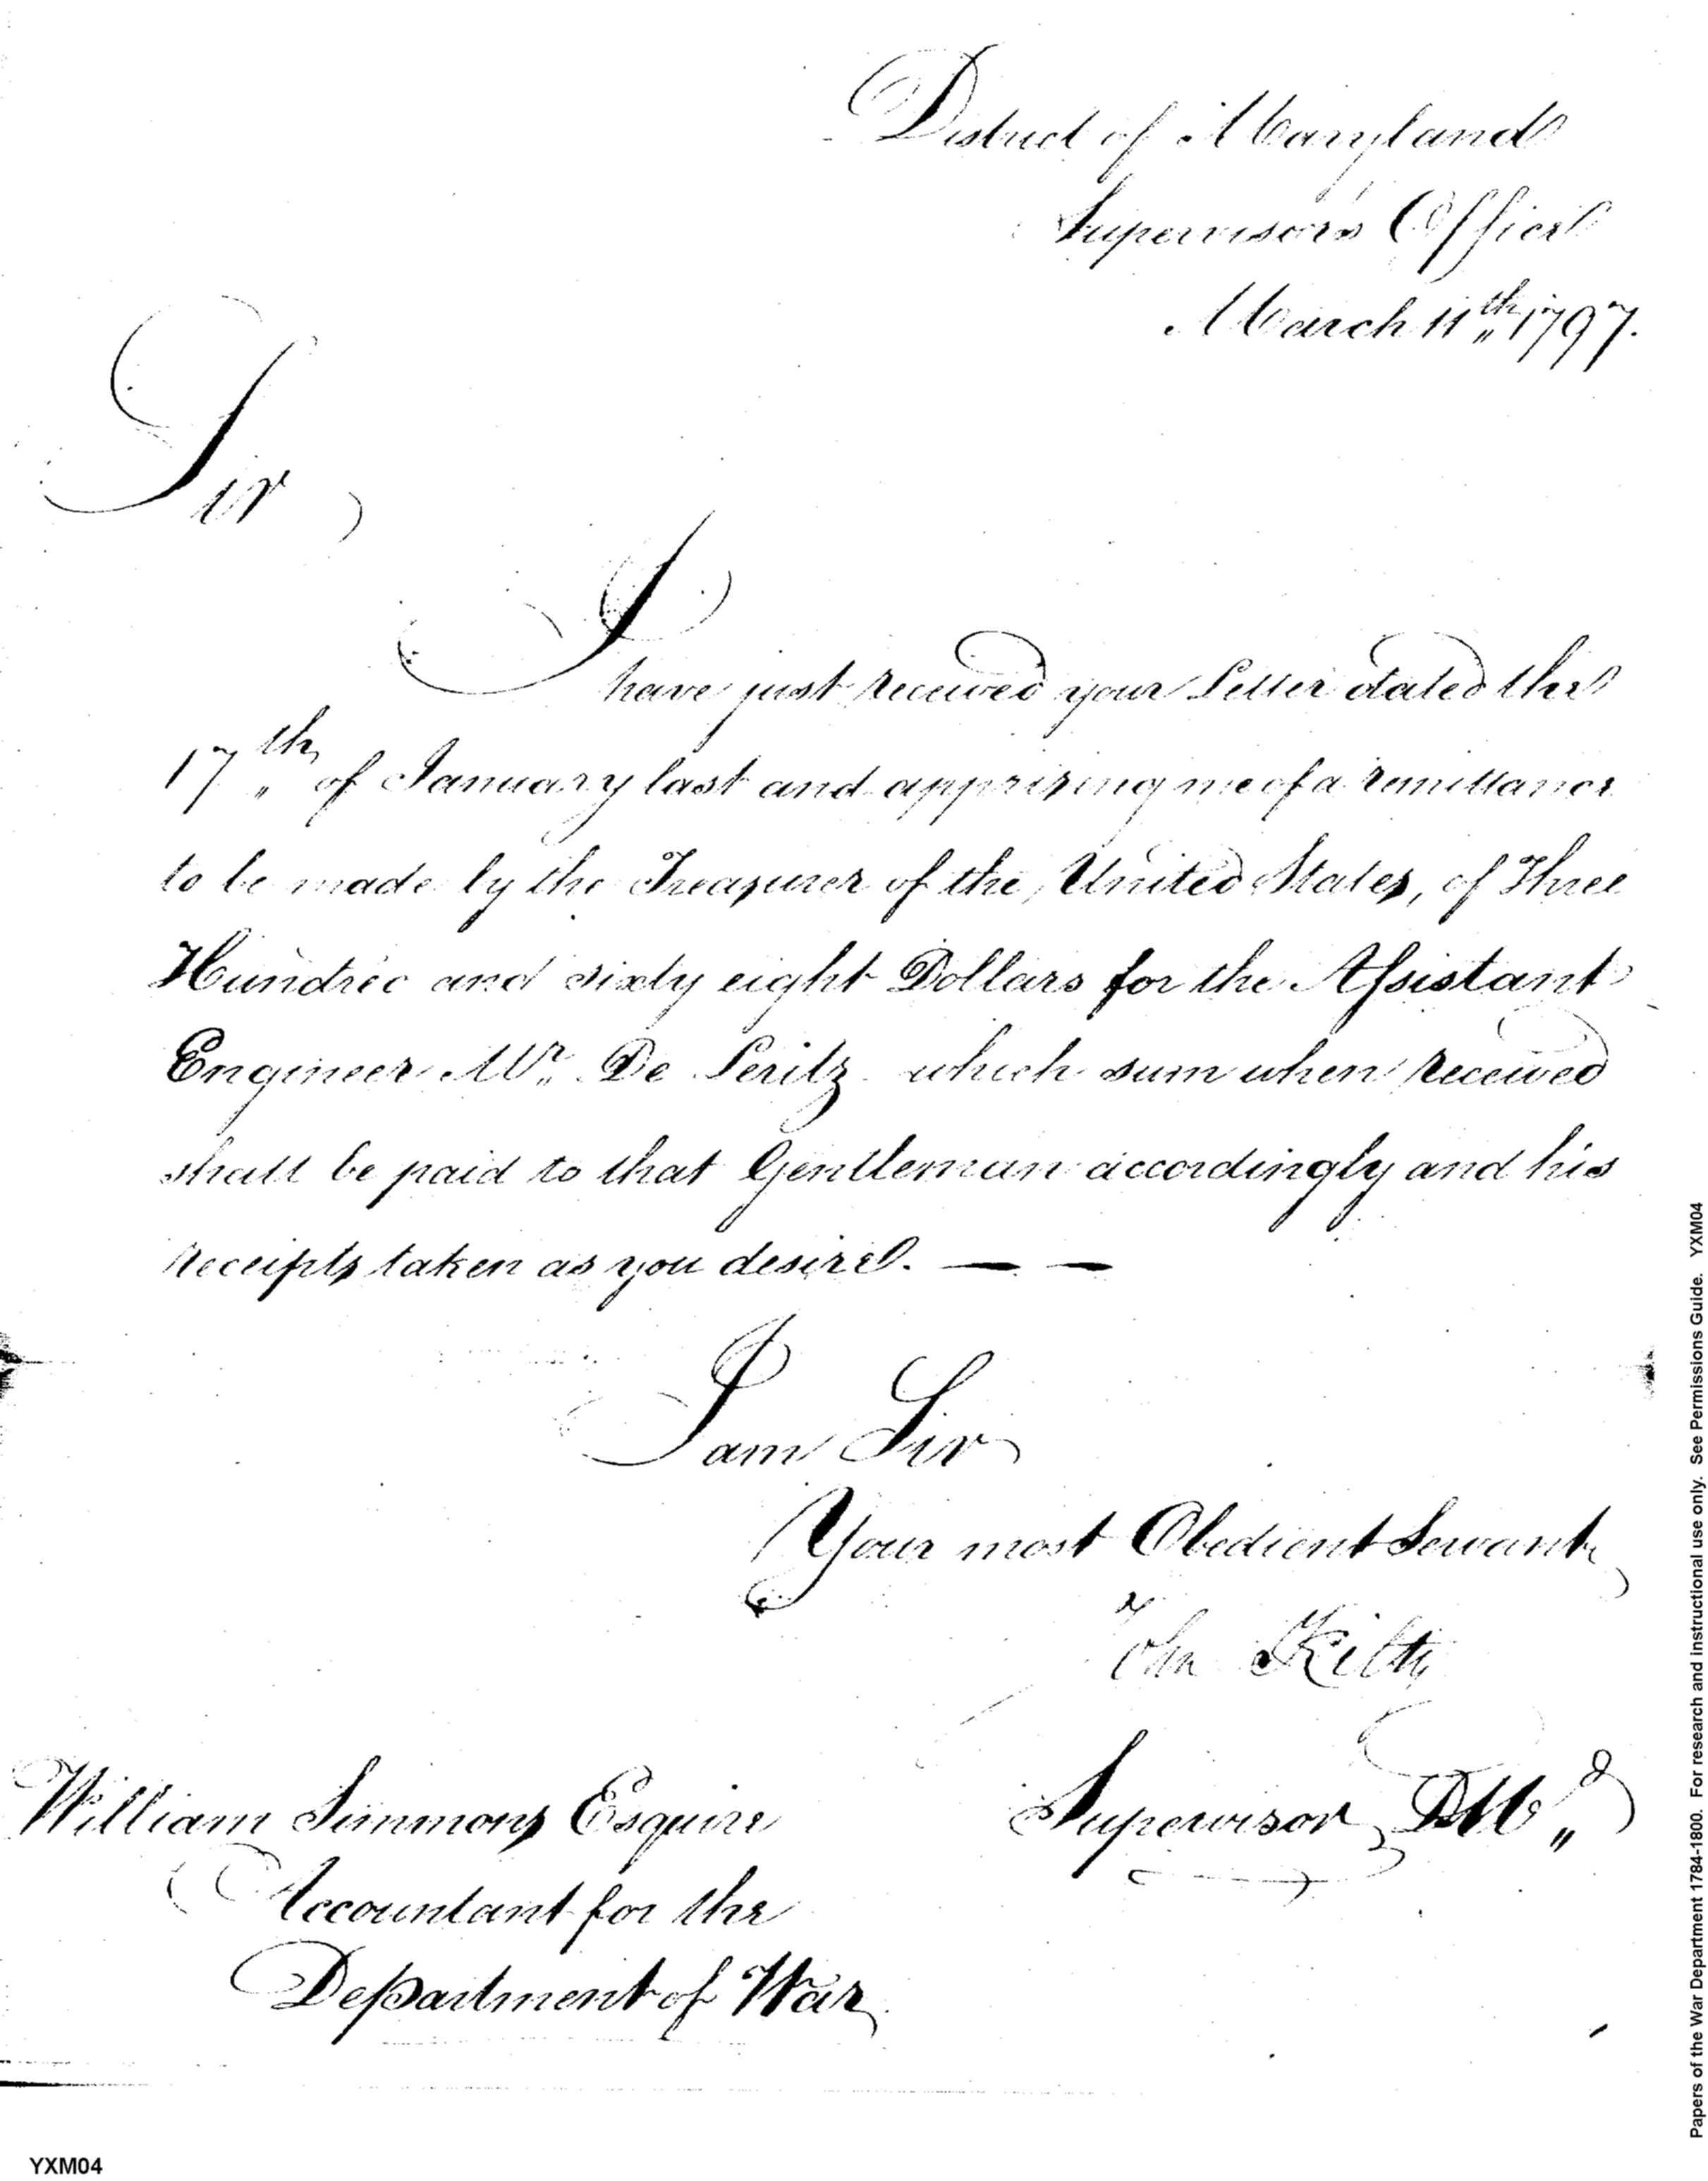 District of Maryland
Supervisor's Office
March 11th 1797.
Sir,
I
have just received your Letter dated the
17th of January last and apprizing me of a remittance
to be made by the Treasurer of the United States, of Three
Hundred and sixty eight Dollars for the Assistant
Engineer Mr. De Peritz which sum when received
shall be paid to that Gentleman accordingly and his
receipts taken as you desire. — —
I am Sir
Your most Obedient Servant,
John Kilty
Supervisor, DMd
William Simmons Esquire
Accountant for the
Department of War,
YXM04
Papers of the War Department 1784-1800. For research and instructional use only. See Permissions Guide. YXM04